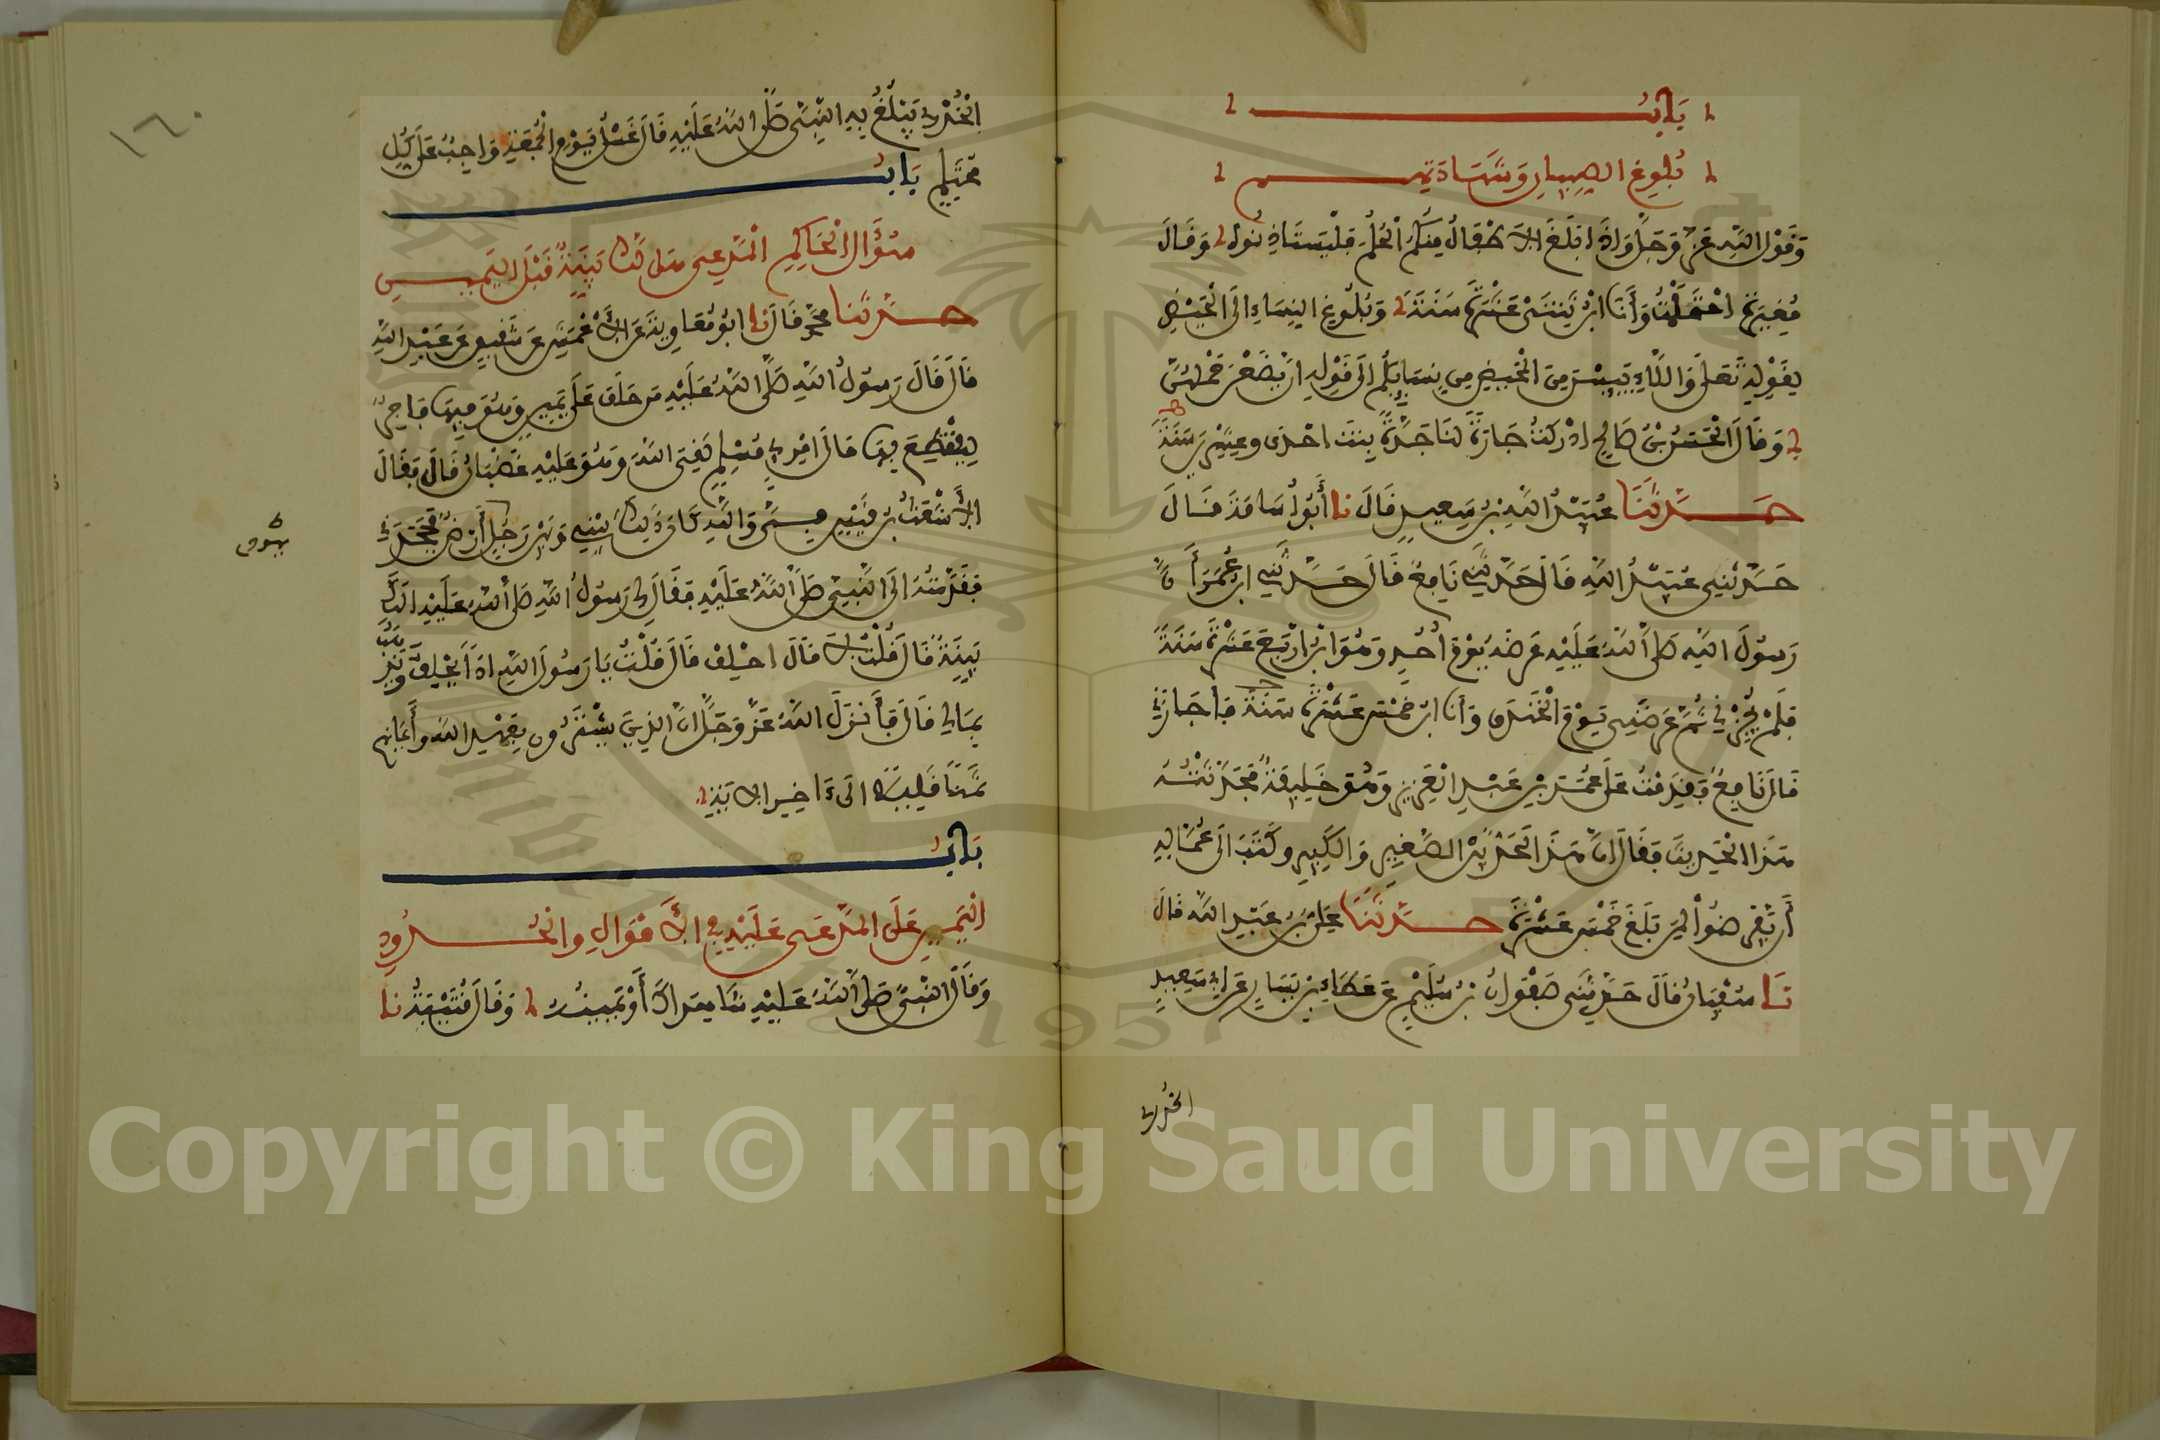 باب
بلوغ الصبيان وشهادتهم
وقول الله عز وجل واذا بلغ الاطفال منكم الحلم فليستاذنوا وقال
مغيرة احتلمت وأنا ابن ثنتي عشرة سنة وبلوغ النساء الى الحيض
لقوله تعلى واللاءي يئسن من الحيض من نسايكم الى قوله ان يضعن حملهن
وقال الحسن بن صالح ادركت جارة لنا جدة بنت احدى وعشرين سنة
حدثنا عبيد الله بن سعيد قال نا أبو اسامة قال
حدثني عبيد الله قال حدثني نافع قال حدثني ابن عمر أن
رسول الله صلى الله عليه عرضه يوم أحد وهو ابن اربع عشرة سنة
فلم يجزني ثم عرضني يوم الخندق وأنا ابن خمس عشرة سنة فاجازني
قال نافع فقدمت على عمر بن عبد العزيز وهو خليفة فحدثته
هذا الحديث فقال ان هذا لحد بين الصغير والكبير وكتب الى عماله
أن يفرضوا لمن بلغ خمس عشرة حدثنا علي بن عبد الله قال
نا سفيان قال حدثني صفوان بن سليم عن عطاء بن يسار عن ابي سعيد
الخدري
١٦٠
الخدري يبلغ به النبي صلى الله عليه قال غسل يوم الجمعة واجب على كل
محتلم باب
سؤال الحاكم المدعي هل لك بينة قبل اليمين
حدثنا محمد قال انا ابو معاوية عن الأعمش عن شقيق عن عبد الله
قال قال رسول الله صلى الله عليه من حلف على يمين وهو فيها فاجر
ليقتطع بها مال امرئ مسلم لقي الله وهو عليه غضبان قال فقال
الأشعث بن قيس في والله كان ذلك كان بيني وبين رجل أرض فجحدني
فقدمته الى النبي صلى الله عليه فقال لي رسول الله صلى الله عليه الك
بينة قال قلت لا قال احلف قال قلت يا رسول الله اذا يحلف ويذهب
بمالي قال فأنزل الله عز وجل ان الذين يشترون بعهد الله وأيمانهم
ثمنا قليلا الى ءاخر الاية
باب
اليمين على المدعى عليه في الأموال والحدود
وقال النبي صلى الله عليه شاهداك أو يمينه وقال قتيبة نا